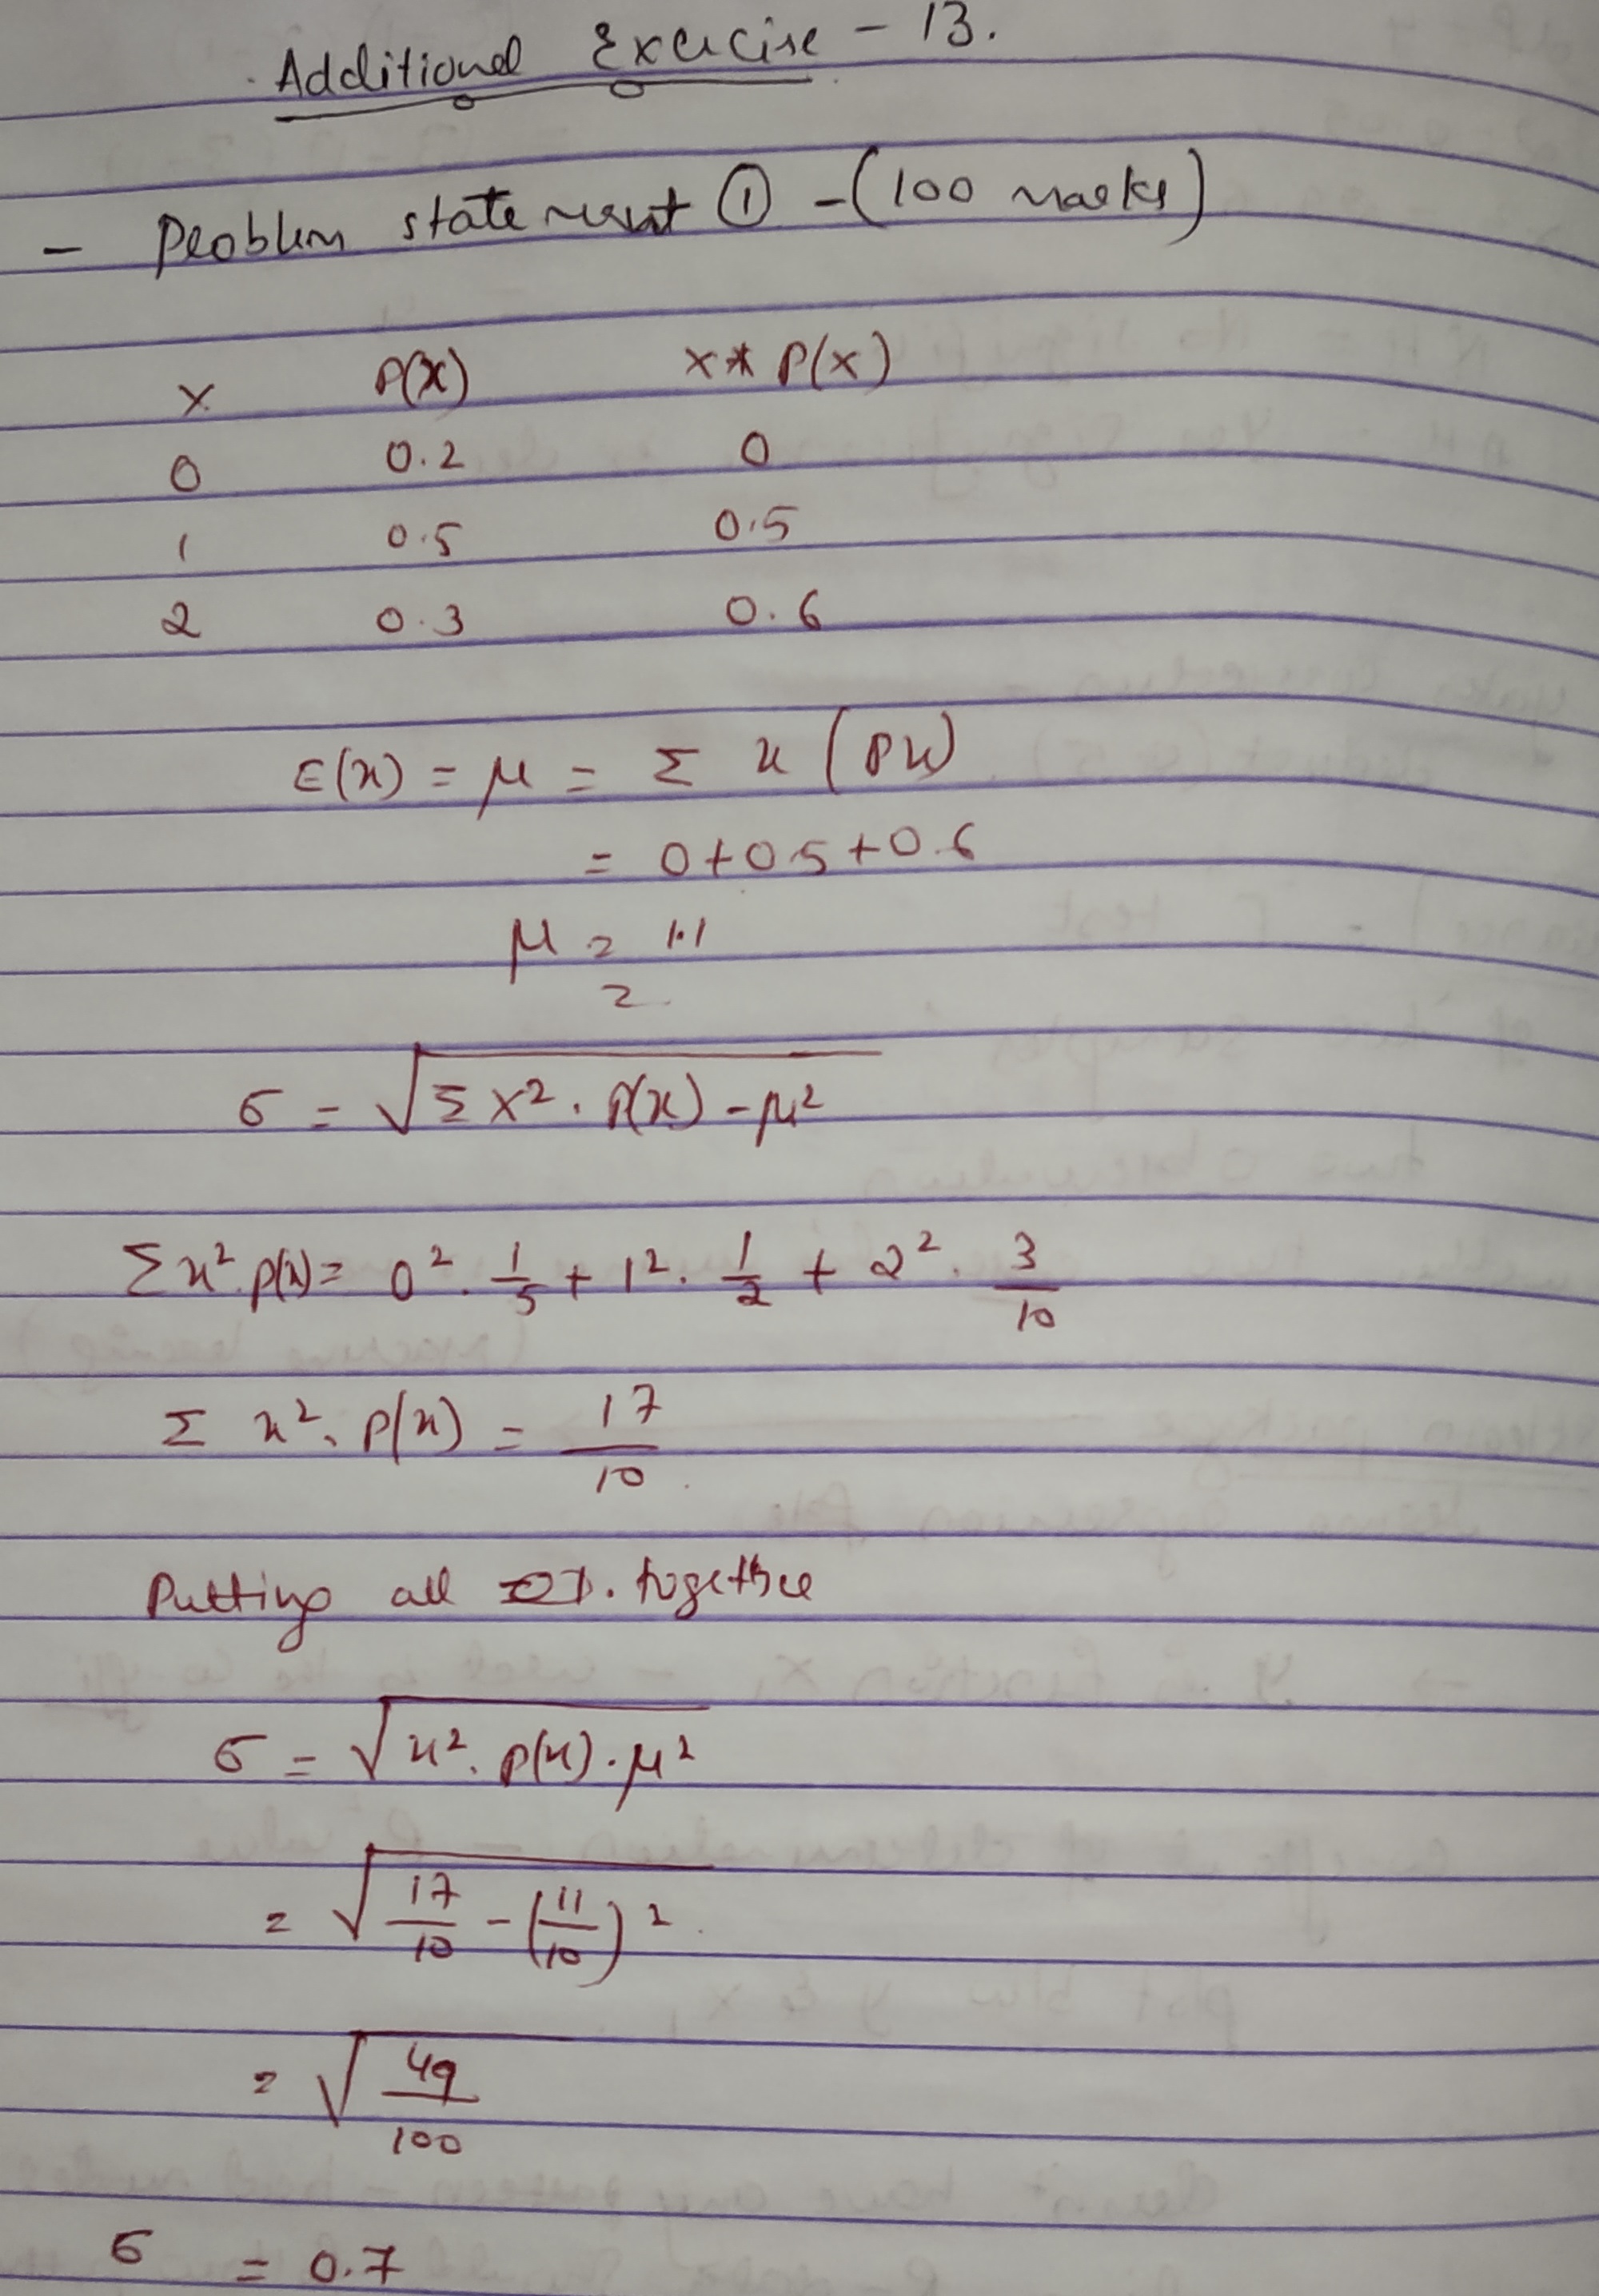 Additional Exercise - 13.
- Problem statement ① - (100 marks)
x P(x) x * P(x)
0 0.2 0
1 0.5 0.5
2 0.3 0.6
E(x) = μ = Σ x (Px)
= 0+0.5+0.6
μ = 1.1
σ = √Σx². P(x) - μ²
Σx².p(x) = 0². 1/5 + 1². 1/2 + 2². 3/10
Σ x². P(x) = 17/10
Putting all together
σ = √x². p(x). μ²
= √17/10 - (11/10)²
= √49/100
σ = 0.7